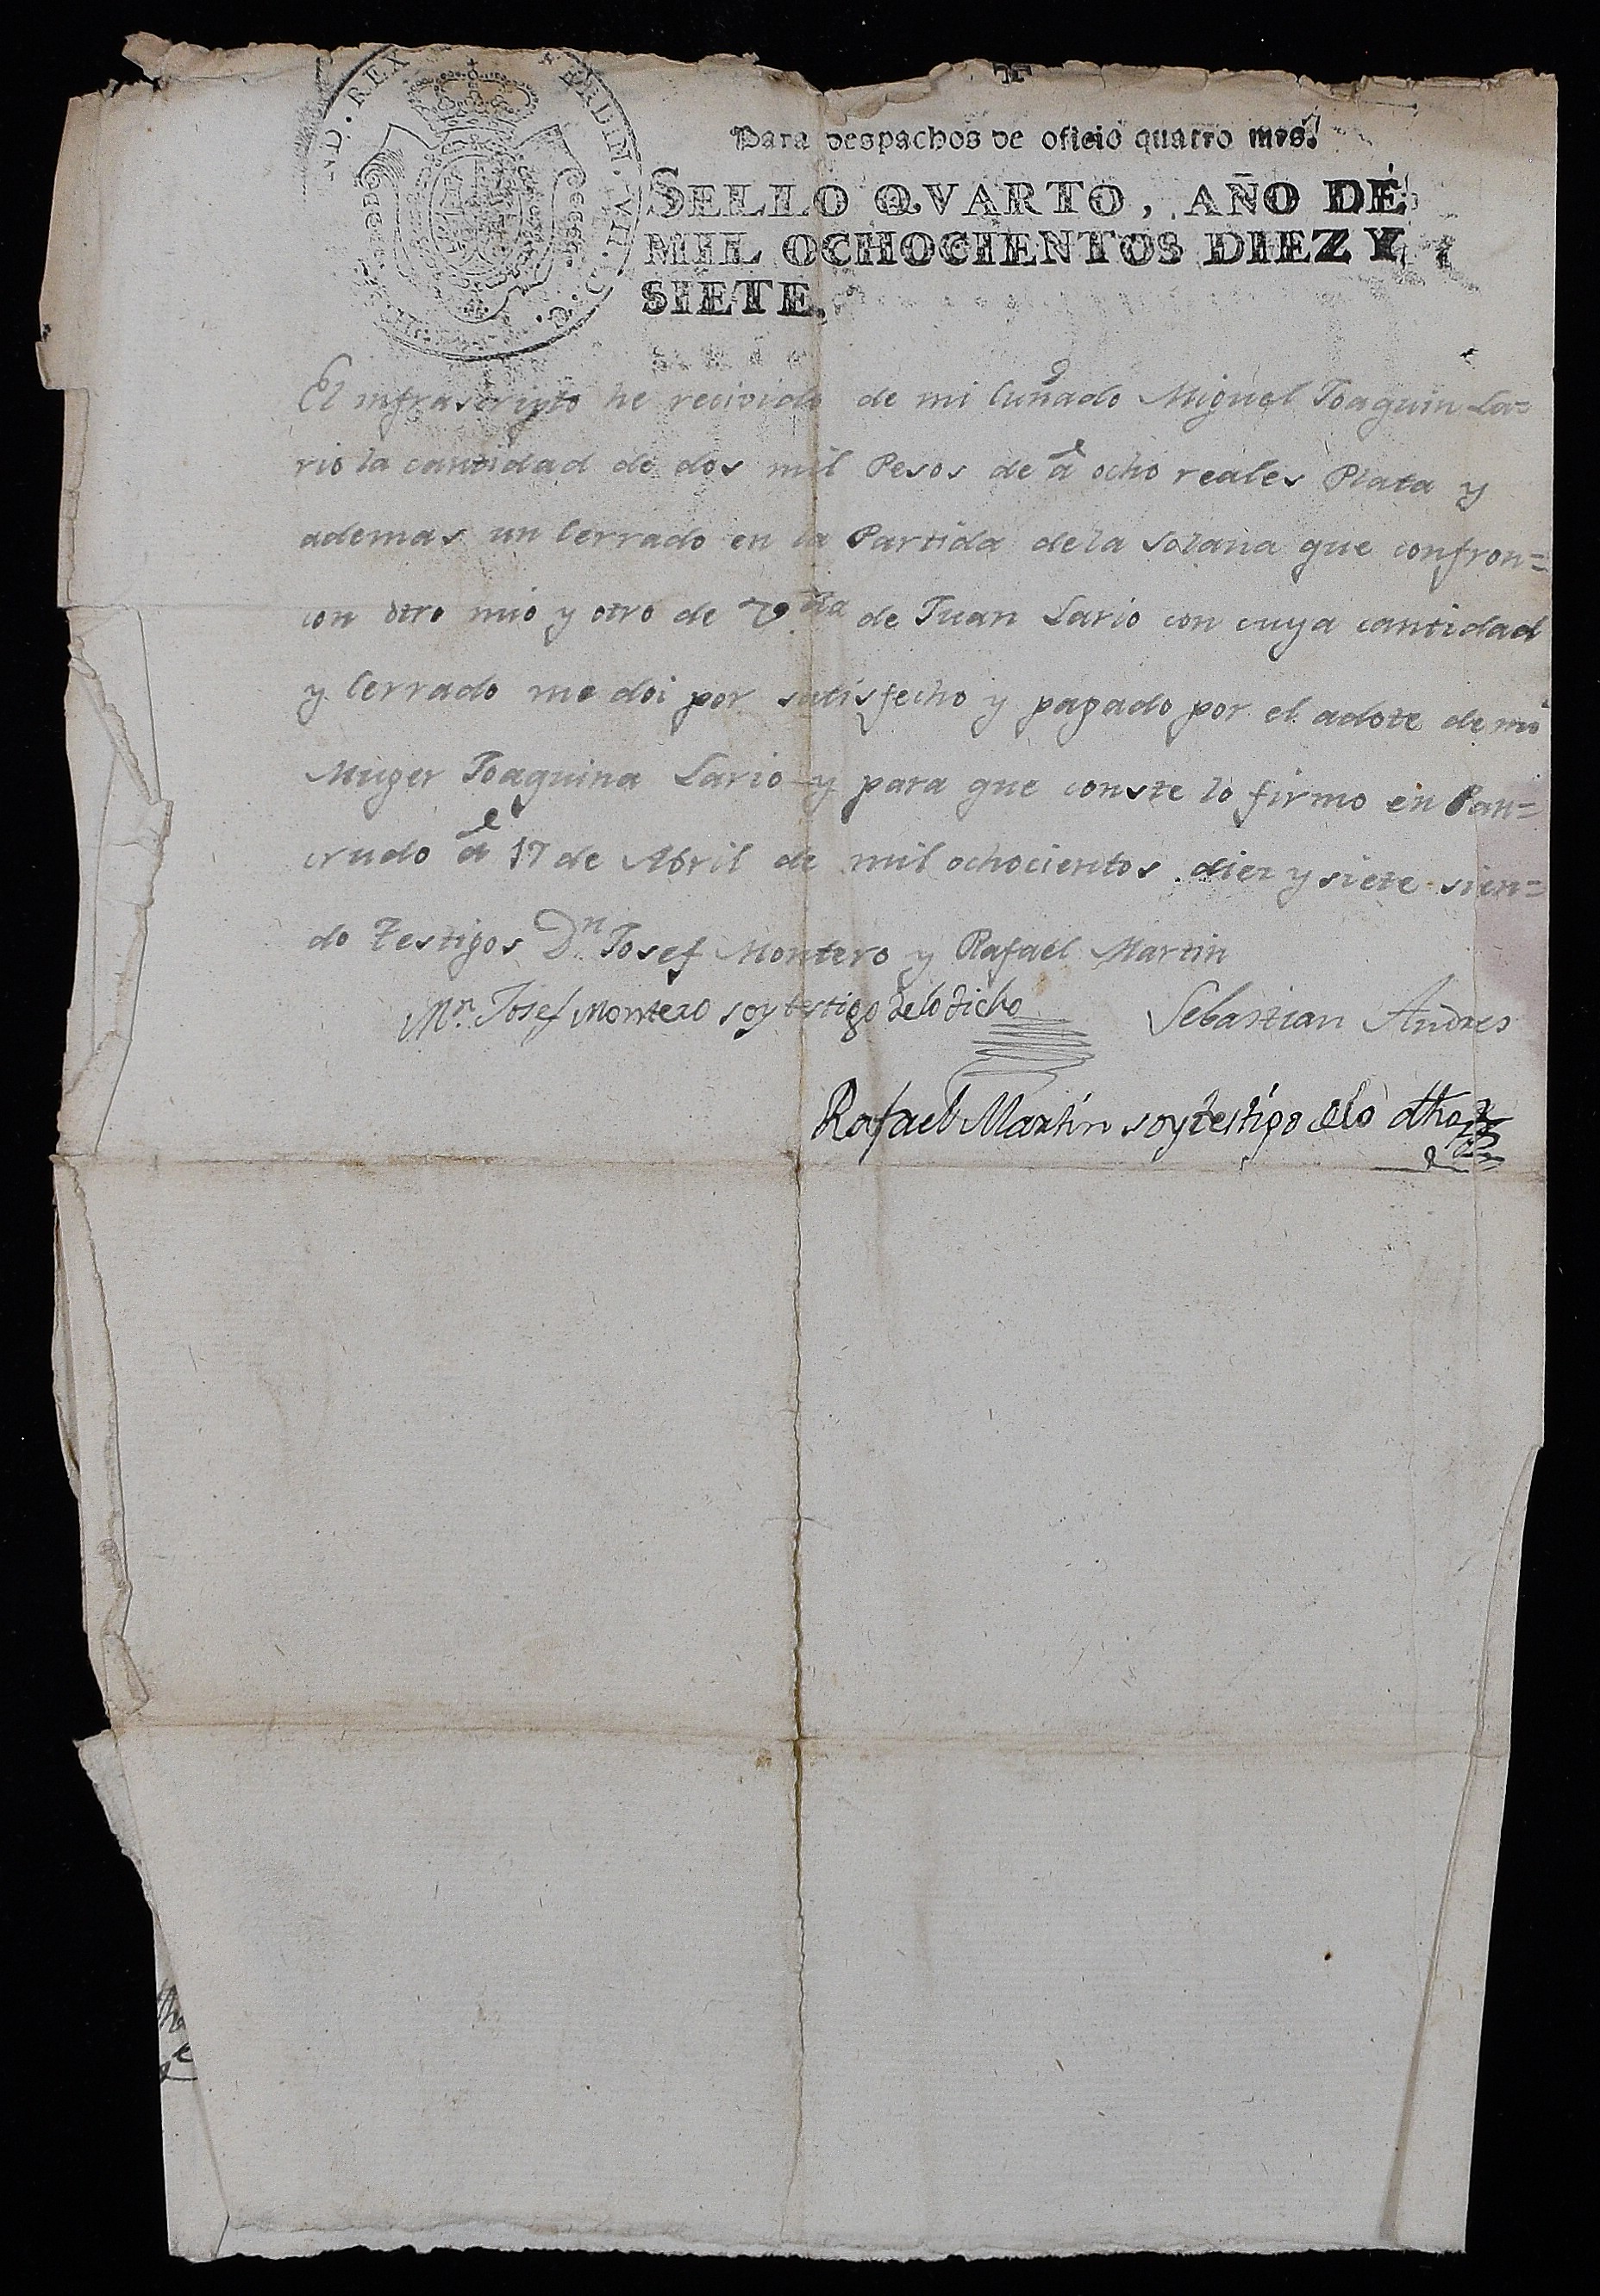 REX
FERDIN. VII. D. G.
Para despachos de oficio quatro mrs.
SELLO QVARTO, AÑO DE
MIL OCHOCIENTOS DIEZ Y
SIETE.
El infrascripto he recivido de mi Cuñado Miguel Joaquin La=
rio la cantidad de dos mil Pesos de â ocho reales Plata y
ademas un Cerrado en la Partida de la Solana que confron=
con otro mio y otro de V.da de Juan Lario con cuya cantidad
y Cerrado me doi por satisfecho y pagado por el adote de mi
Muger Joaquina Lario y para que conste lo firmo en Pan=
crudo â 17 de Abril de mil ochocientos diez y siete sien=
do Testigos Dn. Josef Montero y Rafael Martin
Mn. Josef Montero soy testigo de lo dicho
Sebastian Andres
Rafael Martin soy testigo de lo dho